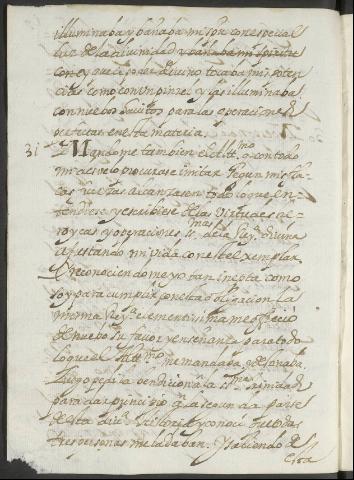 illuminaba y bañaba mi spu con especial
luz de la divinidad y bañaba mi spiritu
con el que el poder divino tocaba mis poten
cias como con un pincel y las illuminaba
con nuebos para las operaciones
perfectas en esta materia.
31 Mandome tambien el Altmo q con todo
mi conato procurase imitar segun mis fla
cas fuerzas alcanzasen todo lo que en
tendiere y escribiese de las Virtudes he
roycas y operaciones smas de la Reyna divina
ajustando mi vida con este exemplar
Y reconociendome yo tan inepta como
soy para cumplir con esta obligacion La
misma Reyna clementissima me offrecio
de nuebo su favor y enseñanza para todo
lo que el Altmo me mandaba y deseñaba.
Luego pedi la bendicion a la sma trinidad
para dar principio a la segunda parte
de esta diva historia y conoci que todas
tres personas me la daban. Y saliendo de
esta